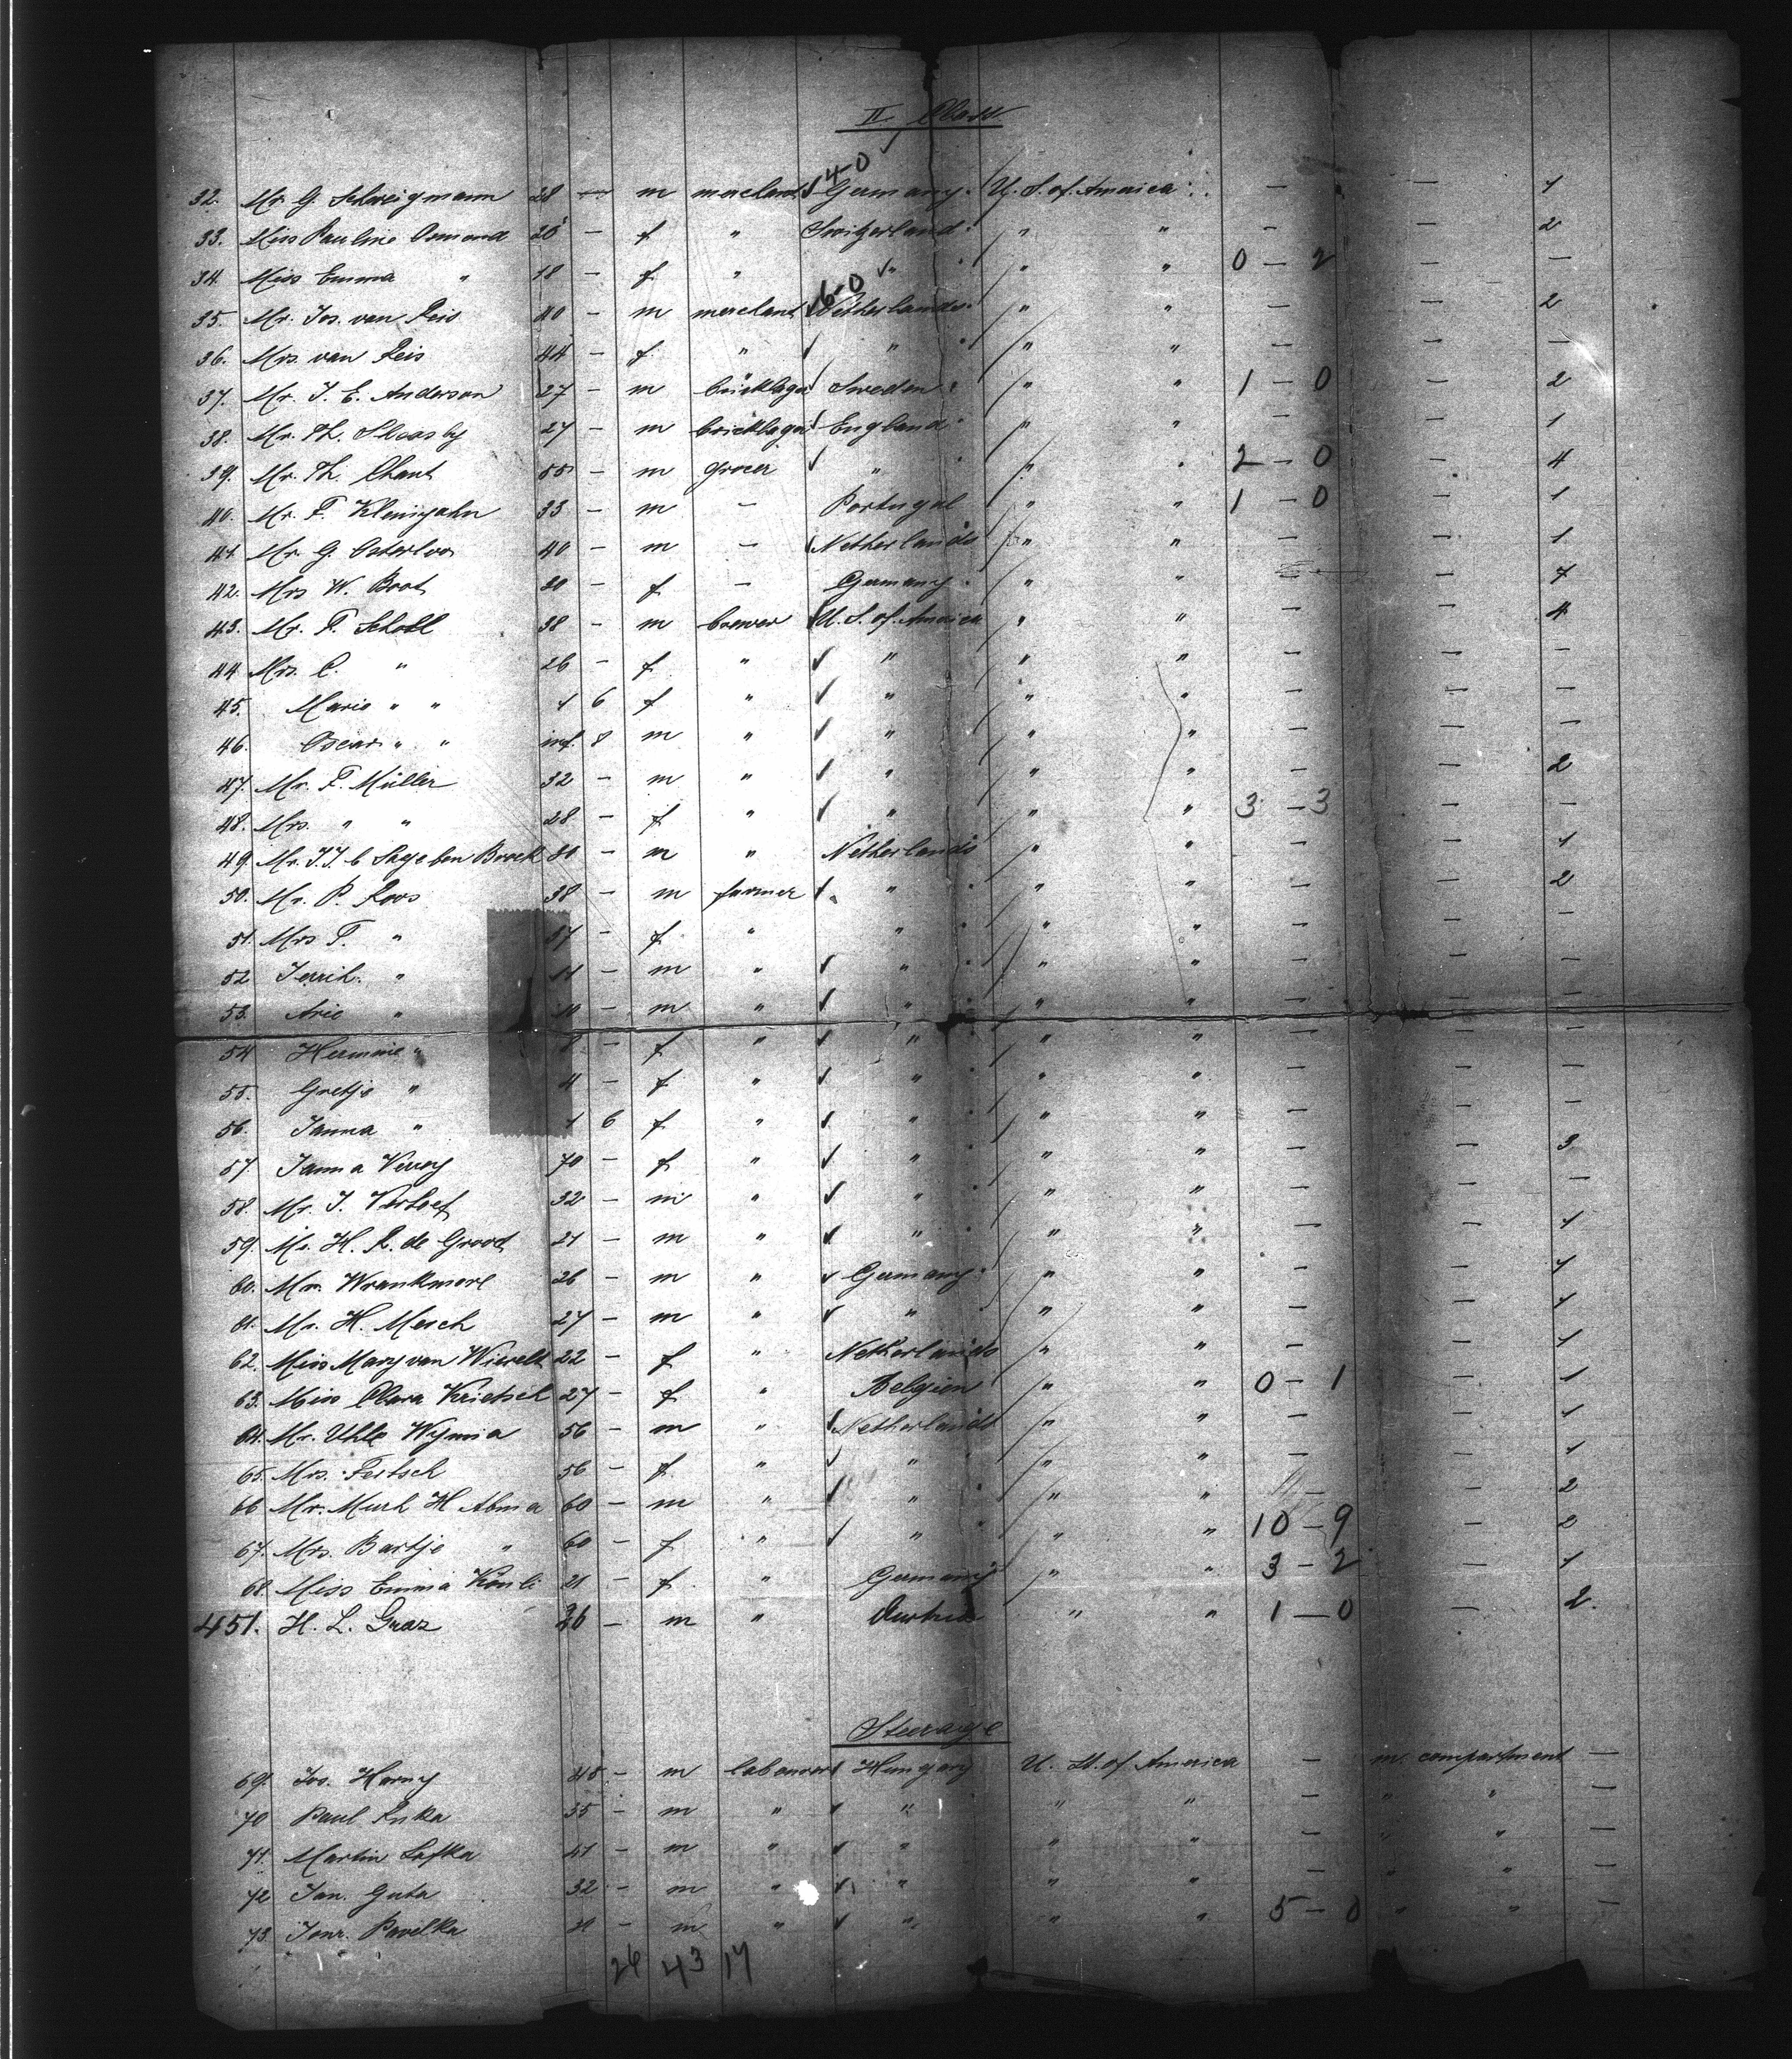 II Class
40
32. Mr. G. Schweigmann 28 — m merchant Germany. U. S. of. America — — 1
33. Miss Pauline Osmond 25 — f " Switzerland " " — — 2
34. Miss Emma " 18 — f " " " " 0 — 2 — —
6-0
35. Mr. Jos. van Reis 40 — m merchant Netherlands " " — — 2
36. Mrs. van Reis 44 — f " " " " — — —
37. Mr. J. E. Anderson 27 — m bricklayer Sweden " " 1 — 0 — 2
38. Mr. Th. Sleasby 27 — m bricklayer England " " — — 1
39. Mr. Th. Chant 55 — m grocer " " " 2 — 0 — 4
40. Mr. F. Kleinjahn 33 — m — Portugal " " 1 — 0 — 1
41. Mr. G. Osterloo 40 — m — Netherlands " " — — 1
42. Mrs W. Boot 30 — f — Germany " " — — 7
43. Mr. F. Schobl 38 — m brewer U. S. of. America " " — — 4
44. Mrs. C. " 26 — f " " " " — — —
45. Marie " " 1 6 f " " " " — — —
46. Oscar " " inf. 8 m " " " " — — —
47. Mr. F. Müller 32 — m " " " " — — 2
48. Mrs. " " 28 — f " " " " 3 — 3 — —
49. Mr. J. J. b Sage ben Broek 30 — m " Netherlands " " — — 1
50. Mr. P. Roos 38 — m farmer " " " — — 2
51. Mrs T. " 37 — f " " " " — — —
52. " 11 — m " " " " — — —
53. Arie " 10 — m " " " " — — —
54. Hermine " 8 — f " " " " — — —
55. Gretje " 4 — f " " " " — — —
56. Janna " 1 6 f " " " " — — —
57. Janna Verrey 70 — f " " " " — — 3
58. Mr. J. Verloef 32 — m " " " " — — —
59. Mr. H. R. de Groot 21 — m " " " " — — 1
60. Mr. Wrankmore 26 — m " Germany " " — — 1
61. Mr. H. Mesch 27 — m " " " " — — 1
62. Miss Mary van Wiereld 22 — f " Netherlands " " — — 1
63. Miss Clara Krietsch 27 — f " Belgien " " 0 — 1 — 1
64. Mr. Uhle Wymia 56 — m " Netherlands " " — — 1
65. Mrs. Fertsch 56 — f " " " " — — 1
66. Mr. Murk H Abma 60 — m " " " " — — 2
67. Mrs. Bartje " 60 — f " " " " 10 — 9 — 2
68. Miss Emma 21 — f " Germany " " 3 — 2 — 1
451. H. L. Graz 26 — m " Austria " " 1 — 0 — 2.
Steerage
69. Jos. Harny 45 — m labourer Hungary U. St. of America — m. compartment —
70 Paul Ruka 35 — m " " " " — " " —
71. Martin Lafka 41 — m " " " " — " " —
72 Jan. Guta 32 — m " " " " — " " —
73. Pavelka — m " " " " 5 — 0 " " —
26 43 17